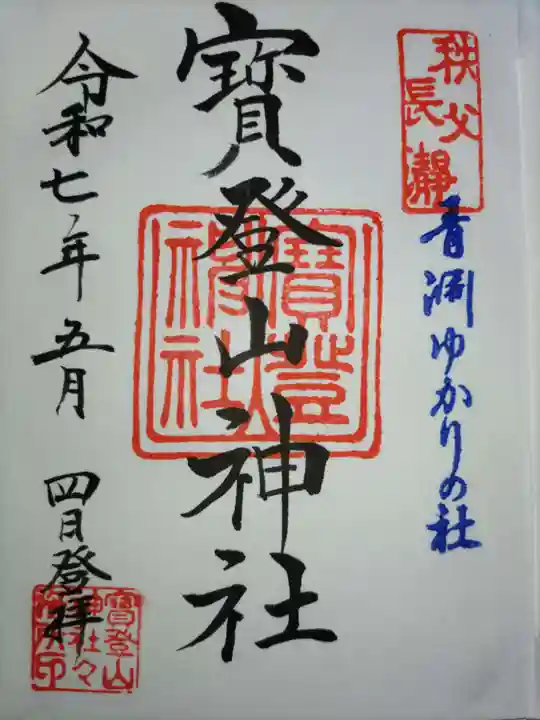 秩父
長瀞
青淵ゆかりの社
寳登山神社
寳登山
神社
令和七年五月
四日登拝
寳登山
神社々
務所印